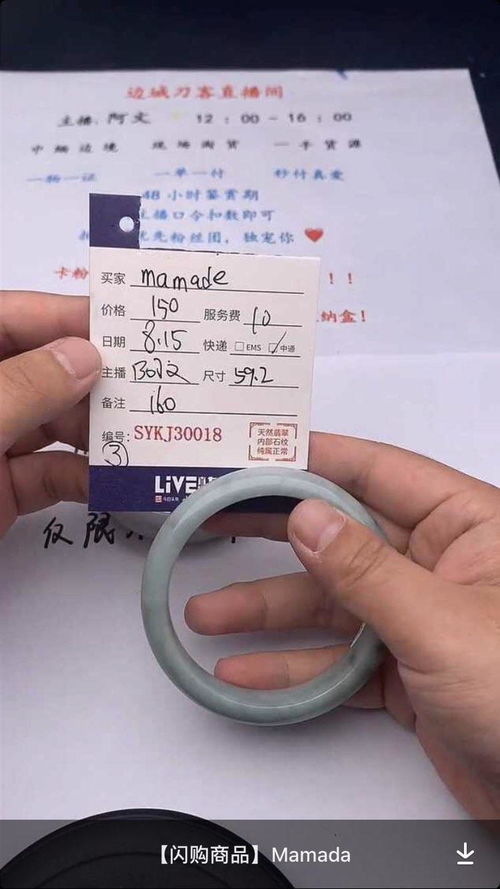 边城刀客直播间
主播:阿文 12:00-16:00
中缅边境 现场淘货 一手货源
一物一证 一单一付 秒付真爱
48小时鉴赏期
主播口令和数即可
优先粉丝团,独宠你
卡粉 !!
纳盒!
买家 mamade
价格 150 服务费 10
日期 8.15 快递 EMS 中通
主播 尺寸 59.2
备注 160
编号: SYKJ30018
③
天然翡翠
内部石纹
纯属正常
LIVE
仅限
【闪购商品】Mamada